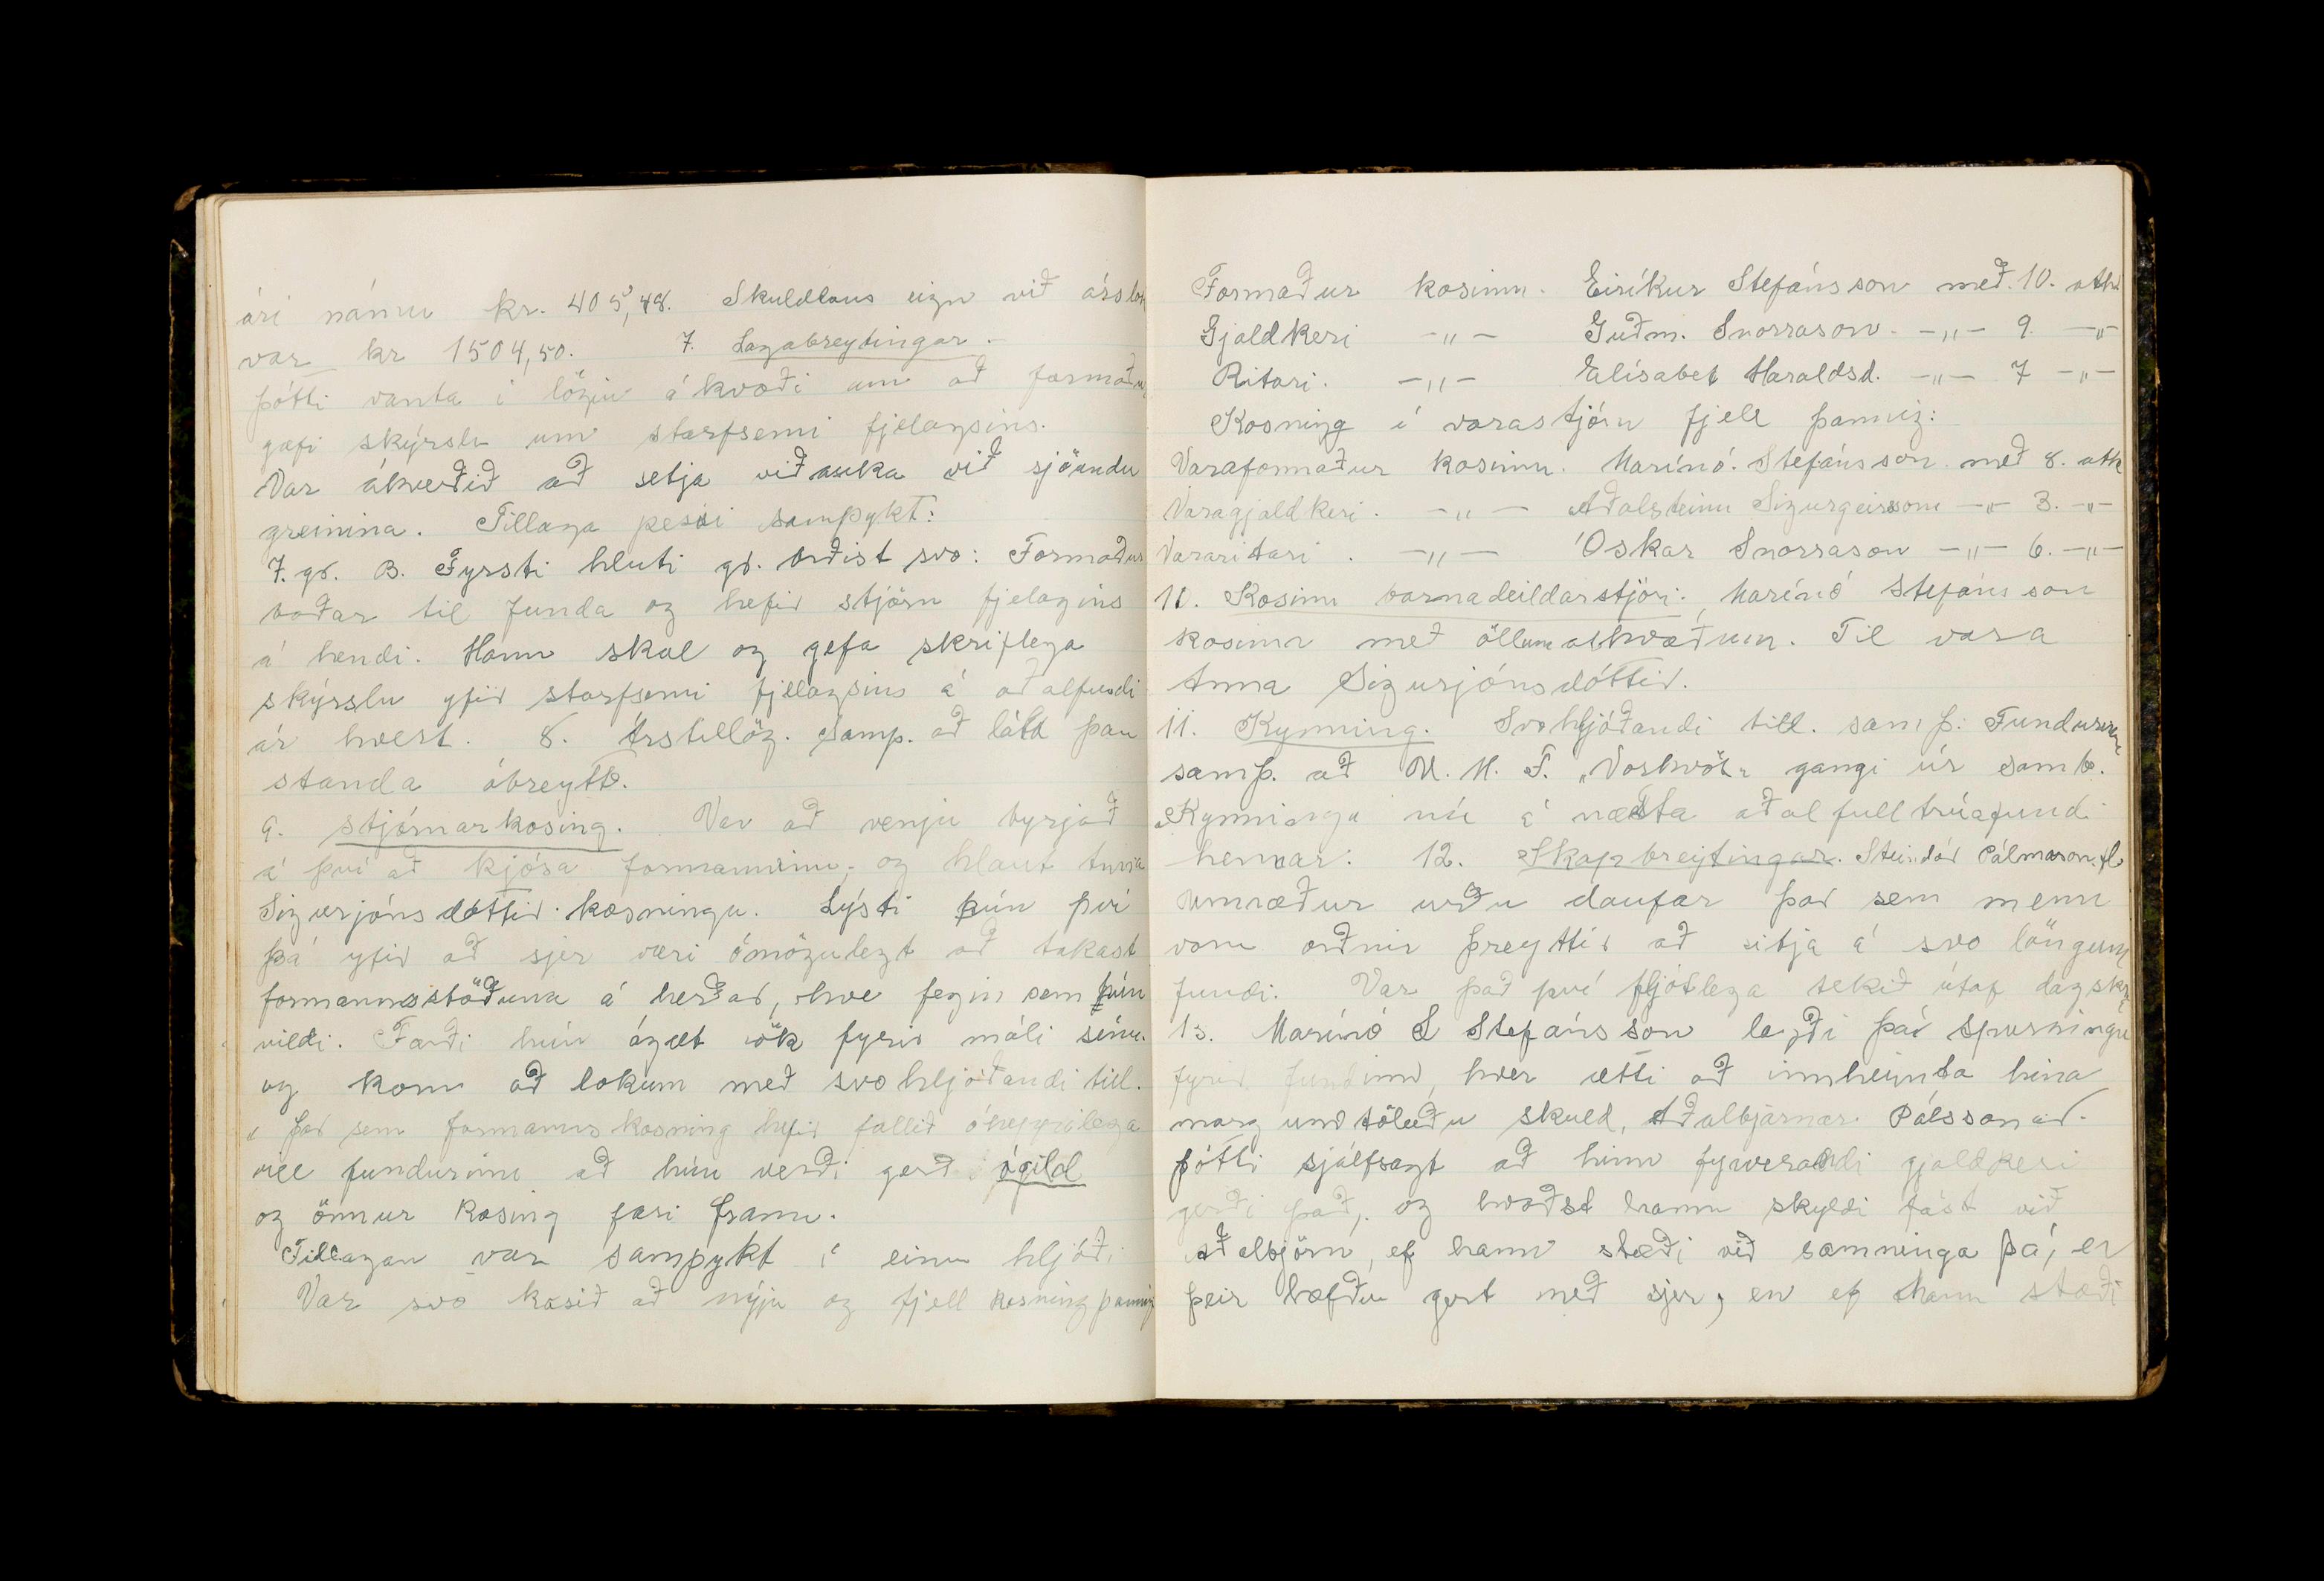 ári námu kr. 405,48. Skuldlaus eign við árslok
var kr 1504,50. 7. Lagabreytingar.
þótti vanta í lögin ákvæði um að formaður
gæfi skýrslu um starfsemi fjelagsins.
Var ákveðið að setja viðauka við sjöundu
greinina. Tillaga þessi samþykt:
7. gr. B. Fyrsti hluti gr. orðist svo: Formaður
boðar til funda og hefir stjórn fjelagins
á hendi. Hann skal og gefa skriflega
skýrslu yfir starfsemi fjelagsins á aðalfundi
ár hvert. 8. Árstillög. Samþ. að láta þau
standa óbreytt.
9. Stjórnarkosing. Var að venju byrjað
á því að kjósa formanninn, og hlaut Anna
Sigurjónsdóttir kosningu. Lýsti hún því
þá yfir að sjer væri ómögulegt að takast
formannsstöðuna á herðar, hve fegin sem hún
vildi. Færði hún ágæt rök fyrir máli sínu.
og kom að lokum með svohljóðandi till.
„Þar sem formannskosning hefir fallið óheppilega
vill fundurinn að hún verði gerð ógild
og önnur kosing fari fram.
Tillagan var samþykt í einu hljóði
Var svo kosið að nýju og fjell kosning þannig
Formaður kosinn. Eiríkur Stefánsson með. 10. atkv
Gjaldkeri -„- Guðm. Snorrason. -„- 9. -„-
Ritari. -„- Elísabet Haraldsd. -„- 7 -„-
Kosning í varastjórn fjell þannig:
Varaformaður kosinn. Marínó. Stefánsson með 8. atk
Varagjaldkeri. -„- Aðalsteinn Sigurgeirsson -„- 3. -„-
Vararitari. -„- Óskar Snorrason -„- 6. -„-
10. Kosinn barnadeildarstjóri. Marínó Stefánsson
kosinn með öllum atkvæðum. Til vara
Anna Sigurjónsdóttir.
11. Kynning. Svohljóðandi till. samþ: Fundurinn
samþ. að U. M. F. „Vorhvöt“ gangi úr samb.
„Kynningu nú á næsta aðalfulltrúafundi
hennar. 12. Skapbreytingar. Steindór Pálmason. fl.
Umræður urðu daufar þar sem menn
voru orðnir þreyttir að sitja á svo löngum
fundi. Var það því fljótlega tekið útaf dagskrá
13. Marínó L Stefánsson lagði þá spurningu
fyrir fundinn, hver ætti að innheimta hina
margumtöluðu skuld, Aðalbjarnar Pálssonar.
þótti sjálfsagt að hinn fyrverandi gjaldkeri
gerði það, og hvaðst hann skyldi fást við
Aðalbjörn, ef hann stæði við samninga þá, er
þeir hæfðu gert með sjer, en ef hann stæði